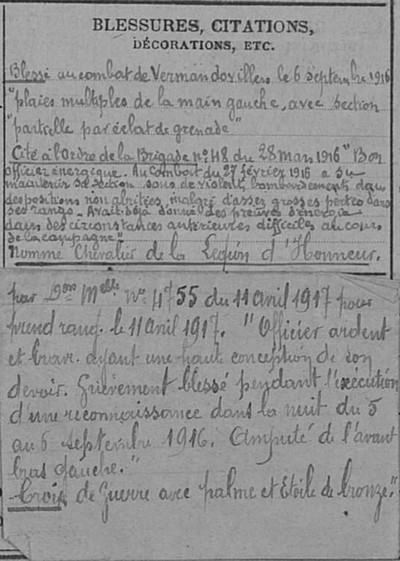 BLESSURES, CITATIONS,
DÉCORATIONS, ETC.
Blessé au combat de Vermandovillers le 6 septembre 1916
"plaies multiples de la main gauche, avec section
"partielle par éclat de grenade"
Cité à l'Ordre de la Brigade n° 48 du 28 Mars 1916 "Bon
officier énergique. Au combat du 27 février 1916 a su
maintenir sa section sous de violents bombardements dans
des positions non abritées, malgré d'assez grosses pertes dans
ses rangs. Avait déjà donné des preuves d'énergie
dans des circonstances antérieures difficiles au cours
de la campagne."
Nommé Chevalier de la Legion d'Honneur.
par Don Melle N° 4755 du 11 avril 1917 pour
prend rang. le 11 avril 1917. "Officier ardent
et brave. ayant une haute conception de son
devoir. Grièvement blessé pendant l'exécution
d'une reconnaissance dans la nuit du 5
au 6 septembre 1916. Amputé de l'avant
bras gauche."
Croix de Guerre avec palme et Etoile de bronze."